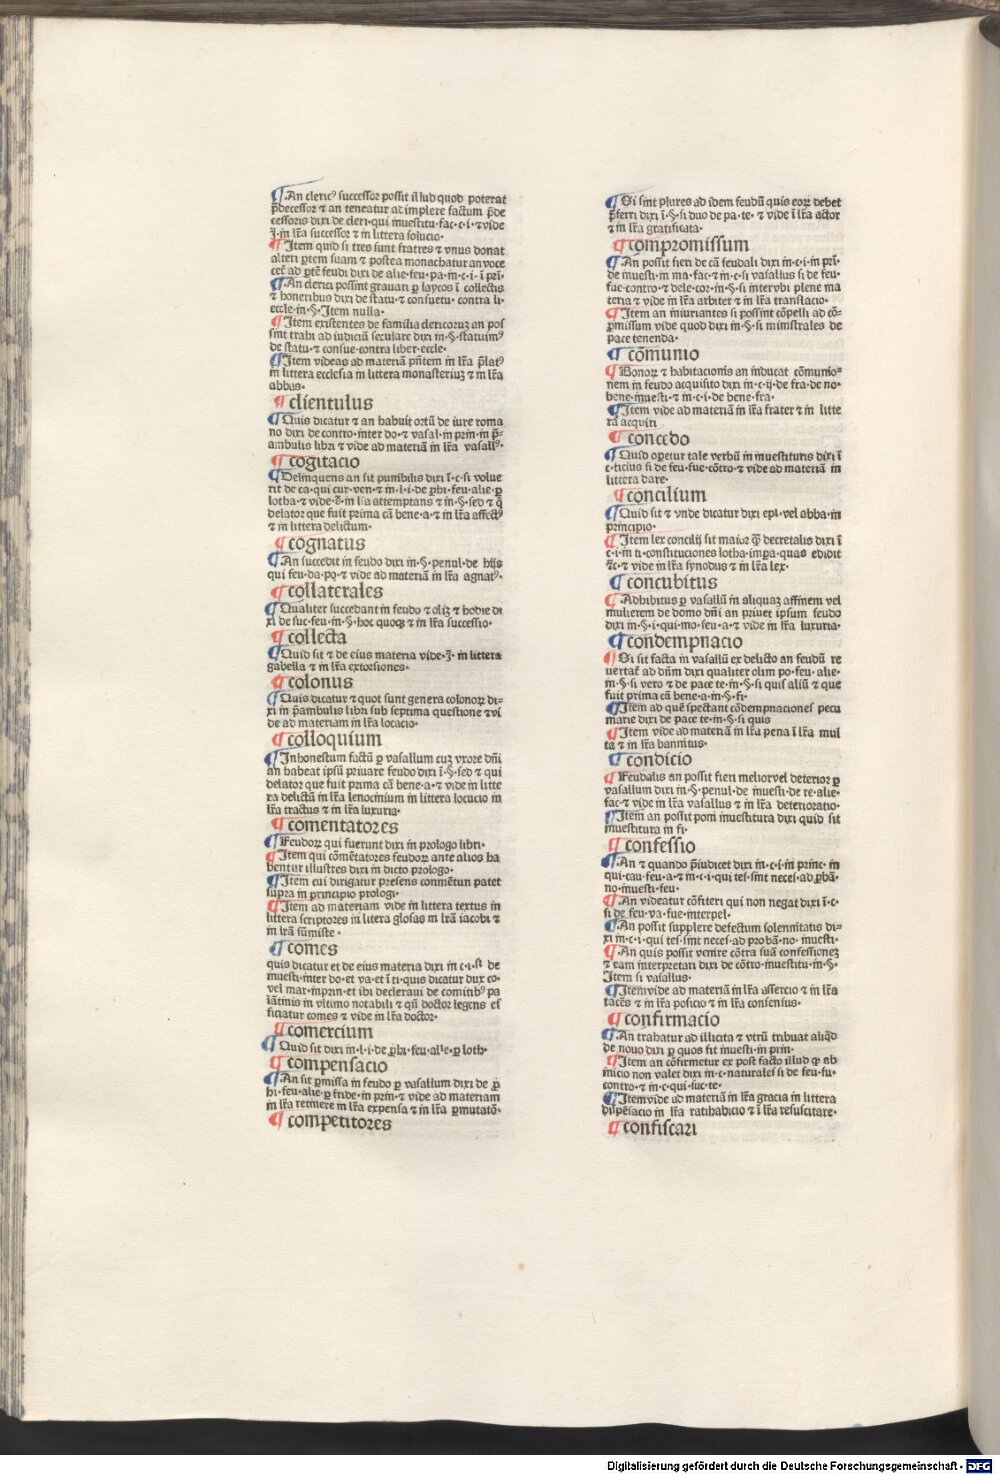 ¶An cleric⁹ successor possit illud quod poterat
p̄decessor ⁊ an teneatur ad implere factum p̄de
cessoris dixi de cleri·qui inuestitu·fac·c·i·⁊ vide
ī·in lr̄a successor ⁊ in littera solucio·
¶Item quid si tres sunt fratres ⁊ vnus donat
alteri ꝑtem suam ⁊ postea monachatur an voce
·de alie·feu·pa·in·c·i·ī pri·
¶An clerici possint grauari ꝑ laycos ī collectis
⁊ honeribus dixi de statu·⁊ consuetu·contra li·
eccle·in·§·Item nulla·
¶Item existentes de familia clericoruꝫ an pos
sint trahi ad iudiciū seculare dixi in·§·statuim⁹
de statu·⁊ consue·contra liber·eccle·
¶Item videas ad materiā pn̄tem in lr̄a p̄lat⁹
in littera ecclesia in littera monasteriuꝫ ⁊ in lr̄a
abbas·
¶clientulus
¶Quis dicatur ⁊ an habuit ortū de iure roma
no dixi de contro·inter do·⁊ vasal·in prin·in p̄
ambulis libri ⁊ vide ad materiā in lr̄a vasall⁹·
¶cogitacio
¶Delinquens an sit punibilis dixi ī·c·si volue
rit de ca·qui cur·ven·⁊ in·l·i·de ꝓhi·feu·alie·ꝑ
lotha·⁊ vide·in lr̄a attemptans ⁊ in·§·sed ⁊ q̄
delator que fuit prima cā bene·a·⁊ in lr̄a affect⁹
⁊ in littera delictum·
¶cognatus
¶An succedit in feudo dixi in·§·penul·de hijs
qui feu·da·po·⁊ vide ad materiā in lr̄a agnat⁹·
¶collaterales
¶Qualiter succedant in feudo ⁊ oliꝫ ⁊ hodie di
xi de suc·feu·in·§·hoc quoqꝫ ⁊ in lr̄a successio·
¶collecta
¶Quid sit ⁊ de eius materia vide·ꝫ̄·in littera
gabella ⁊ in lr̄a extorsiones·
¶colonus
¶Quis dicatur ⁊ quot sunt genera colonoꝝ di-
xi in p̄ambulis libri sub septima questione ⁊ vi
de ad materiam in lr̄a locacio·
¶colloquium
¶Inhonestum factū ꝑ vasallum cuꝫ vxore dn̄i
an habeat ipsū priuare feudo dixi ī·§·sed ⁊ qui
delator que fuit prima cā bene·a·⁊ vide in litte
ra delictū in lr̄a lenocinium in littera locucio in
lr̄a tractus ⁊ in lr̄a luxuria·
¶comentatores
¶Feudoꝝ qui fuerunt dixi in prologo libri·
¶Item qui cōmētatores feudoꝝ ante alios ha
bentur illustres dixi in dicto prologo·
¶Item cui dirigatur presens conmētum patet
supra in principio prologi·
¶Item ad materiam vide in littera textus in
littera scriptores in litera glosas in lr̄a iacobi ⁊
in lr̄a sūmiste·
¶comes
quis dicatur et de eius materia dixi in c·i·st de
inuesti·inter do·et va·et ī ti·quis dicatur dux co·
vel mar·in prin·et ibi declaraui de comitib⁹ pa
latinis in vltimo notabili ⁊ qn̄ doctor legens ef
ficiatur comes ⁊ vide in lr̄a doctor·
¶comercium
¶Quid sit dixi in·l·i·de ꝓhi·feu·alie·ꝑ loth·
¶compensacio
¶An sit ꝑmissa in feudo ꝑ vasallum dixi de ꝓ
hi·feu·alie·ꝑ fride·in prin·⁊ vide ad materiam
in lr̄a retinere in lr̄a expensa ⁊ in lr̄a ꝑmutatō·
¶competitores
¶Si sint plures ad idem feudū quis eoꝝ debet
p̄ferri dixi ī·§·si duo de pa·te·⁊ vide ī lr̄a actor
⁊ in lr̄a gratificata·
¶compromissum
¶An possit fieri de cā feudali dixi in·c·i·in prī·
de inuesti·in ma·fac·⁊ in·c·si vasallus si de feu·
fue·contro·⁊ dele·cor·in·§·si interubi plene ma
teria ⁊ vide in lr̄a arbiter ⁊ in lr̄a transtacio·
¶Item an iniuriantes si possint cōpelli ad cō-
ꝓmissum vide quod dixi in·§·si ministrales de
pace tenenda·
¶cōmunio
¶Bonoꝝ ⁊ habitacionis an inducat cōmunio-
nem in feudo acquisito dixi in·c·ij·de fra·de no·
bene·inuesti·⁊ in·c·i·de bene·fra·
¶Item vide ad materiā in lr̄a frater ⁊ in litte
ra acquiri
¶concedo
¶Quid oꝑetur tale verbū in inuestituris dixi ī
c·ticius si de feu·fue·cōtro·⁊ vide ad materiā in
littera dare·
¶concilium
¶Quid sit ⁊ vnde dicatur dixi epi·vel abba·in
principio·
¶Item lex concilij sit maior q̄ decretalis dixi ī
c·i·in ti·constituciones lotha·impa·quas edidit
⁊c̄·⁊ vide in lr̄a synodus ⁊ in lr̄a lex·
¶concubitus
¶Adhibitus ꝑ vasallū in aliquaꝫ affinem vel
mulierem de domo dn̄i an priuet ipsum feudo
dixi in·§·i·qui·mo·feu·a·⁊ vide in lr̄a luxuria·
¶condempnacio
¶Si sit facta in vasallū ex delicto an feudū re
uertat̄ ad dn̄m dixi qualiter olim po·feu·alie·
in·§·si vero ⁊ de pace te·in·§·si quis aliū ⁊ que
fuit prima cā bene·a·in·§·fi·
¶Item ad quē spectant cōdempnaciones pecu
niarie dixi de pace te·in·§·si quis
¶Item vide ad materiā in lr̄a pena ī lr̄a mul
ta ⁊ in lr̄a bannitus·
¶condicio
¶Feudalis an possit fieri meliorvel deterior ꝑ
vasallum dixi in·§·penul·de inuesti·de re·alie·
fac·⁊ vide in lr̄a vasallus ⁊ in lr̄a deterioratio·
¶Item an possit poni inuestitura dixi quid sit
inuestitura in fi·
¶confessio
¶An ⁊ quando p̄iudicet dixi in·c·i·in princ·in
qui·cau·feu·a·⁊ in·c·i·qui tes·sint neces·ad ꝓbā·
no·inuesti·feu·
¶An videatur cōfiteri qui non negat dixi ī·c·
si de feu·va·fue·interpel·
¶An possit supplere defectum solennitatis di-
xi in·c·i·qui tes·sint neces·ad probā·no·inuesti·
¶An quis possit venire cōtra suā confessioneꝫ
⁊ eam interpretari dixi de cōtro·inuestitu·in·§·
Item si vasallus·
¶Itemvide ad materiā in lr̄a assercio ⁊ in lr̄a
tacēs ⁊ in lr̄a posicio ⁊ in lr̄a consensus·
¶confirmacio
¶An trahatur ad illicita ⁊ vtrū tribuat aliqd̄
de nouo dixi ꝑ quos fit inuesti·in prin·
¶Item an cōfirmetur ex post facto illud qꝫ ab
inicio non valet dixi in·c·naturales si de feu·fu·
contro·⁊ in·c·qui·suc·te·
¶Itemvide ad materiā in lr̄a gracia in littera
dispēsacio in lr̄a ratihabicio ⁊ ī lr̄a resuscitare·
¶confiscari
Digitalisierung gefördert durch die Deutsche Forschungsgemeinschaft · DFG